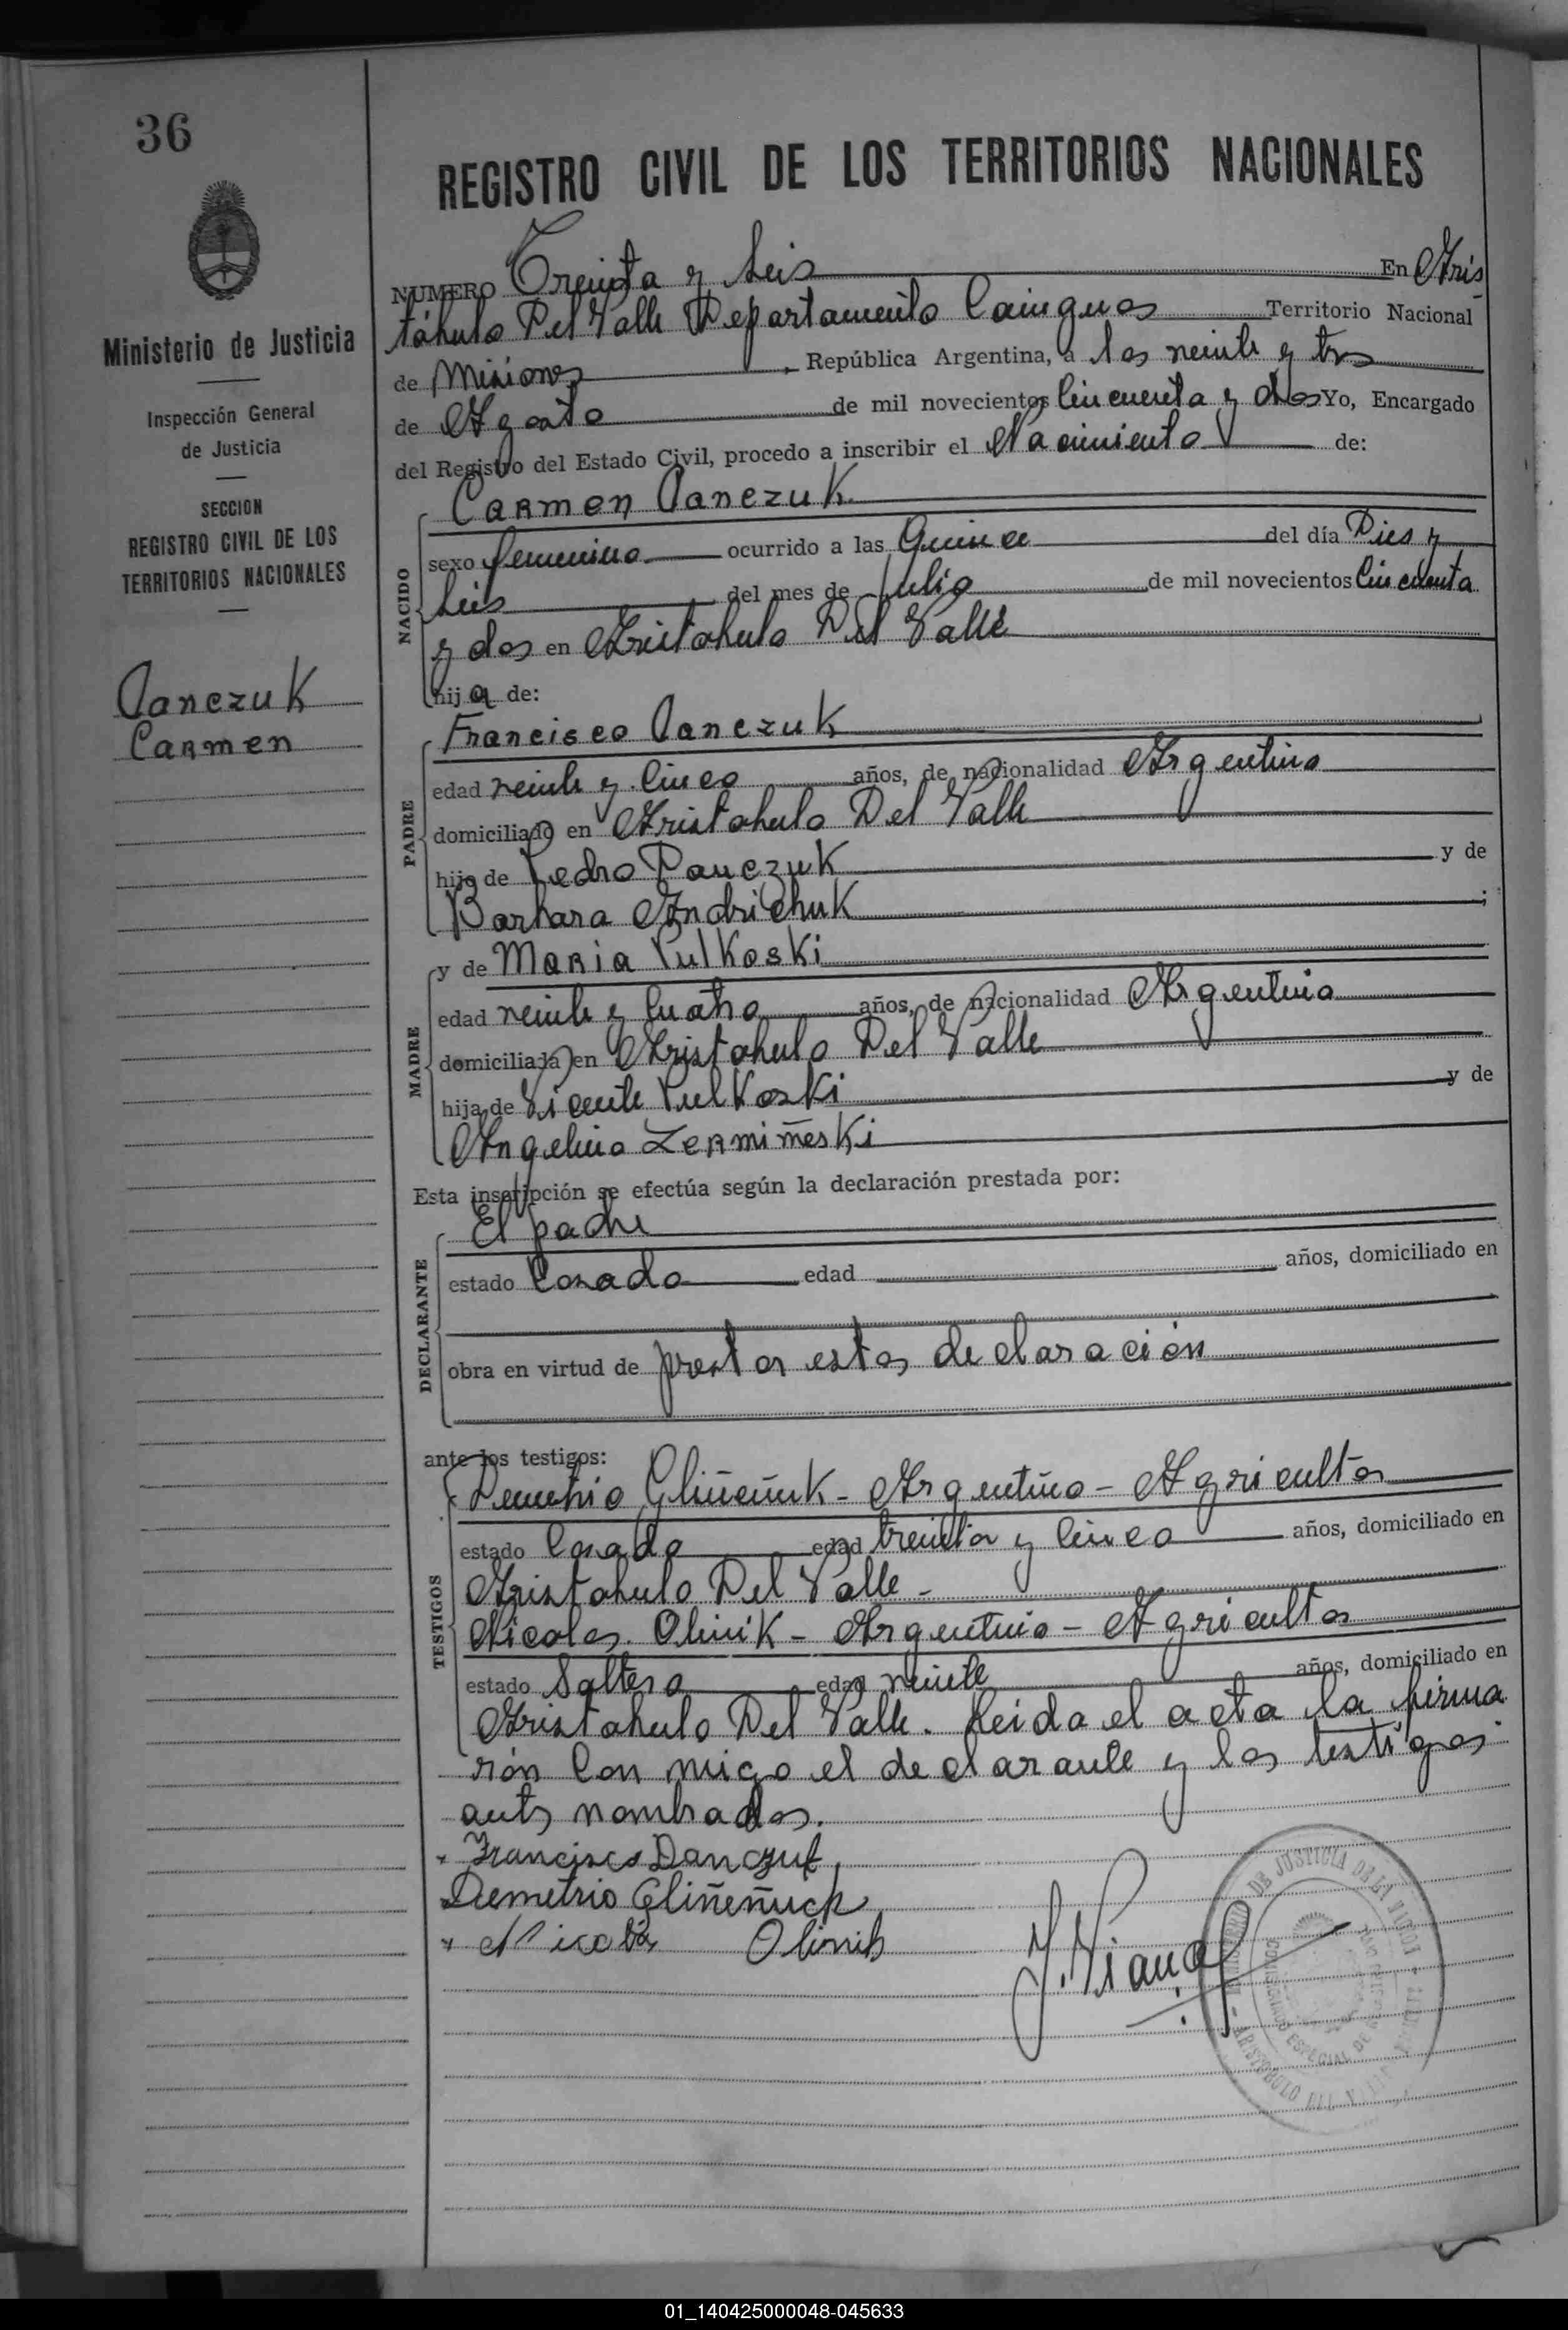 36
REGISTRO CIVIL DE LOS TERRITORIOS NACIONALES
Ministerio de Justicia
Inspección General
de Justicia
SECCION
REGISTRO CIVIL DE LOS
TERRITORIOS NACIONALES
Panczuk
Carmen
NUMERO Treinta y Seis En Aris
tóbulo Del Valle Departamento Cainguas Territorio Nacional
de Misiones, República Argentina, a los veinte y tres
de Agosto de mil novecientos Cincuenta y dos Yo, Encargado
del Registro del Estado Civil, procedo a inscribir el Nacimiento de:
NACIDO
Carmen Panczuk
sexo femenino ocurrido a las Quince del día Dies y
Seis del mes de Julio de mil novecientos Cincuenta
y dos en Aristobulo Del Valle
hija de:
PADRE
Francisco Panczuk
edad veinte y Cinco años, de nacionalidad Argentino
domiciliado en Aristobulo Del Valle
hijo de Pedro Panczuk y de
Barbara Andrichuk;
MADRE
y de Maria Pulkoski
edad veinte y Cuatro años, de nacionalidad Argentina
domiciliada en Aristobulo Del Valle
hija de Vicente Pulkoski y de
Angelina Zermiñeski
Esta inscripción se efectúa según la declaración prestada por:
DECLARANTE
El padre
estado Casado edad años, domiciliado en
obra en virtud de prestar estas declaración
ante los testigos:
TESTIGOS
Demetrio Gliñeñuk - Argentino - Agricultor
estado Casado edad treinta y Cinco años, domiciliado en
Aristobulo Del Valle -
Nicolas Olinik - Argentino - Agricultor
estado Soltero edad veinte años, domiciliado en
Aristobulo Del Valle. Leida el acta la firma
rón Con migo el declarante y los testigos
antes nombrados.
Francisco Panczuk
Demetrio Gliñeñuck
Nicolás Olinik
DE JUSTICIA DE LA NACION
ARISTOBULO DEL VALLE
ESPECIAL DE
01_140425000048-045633